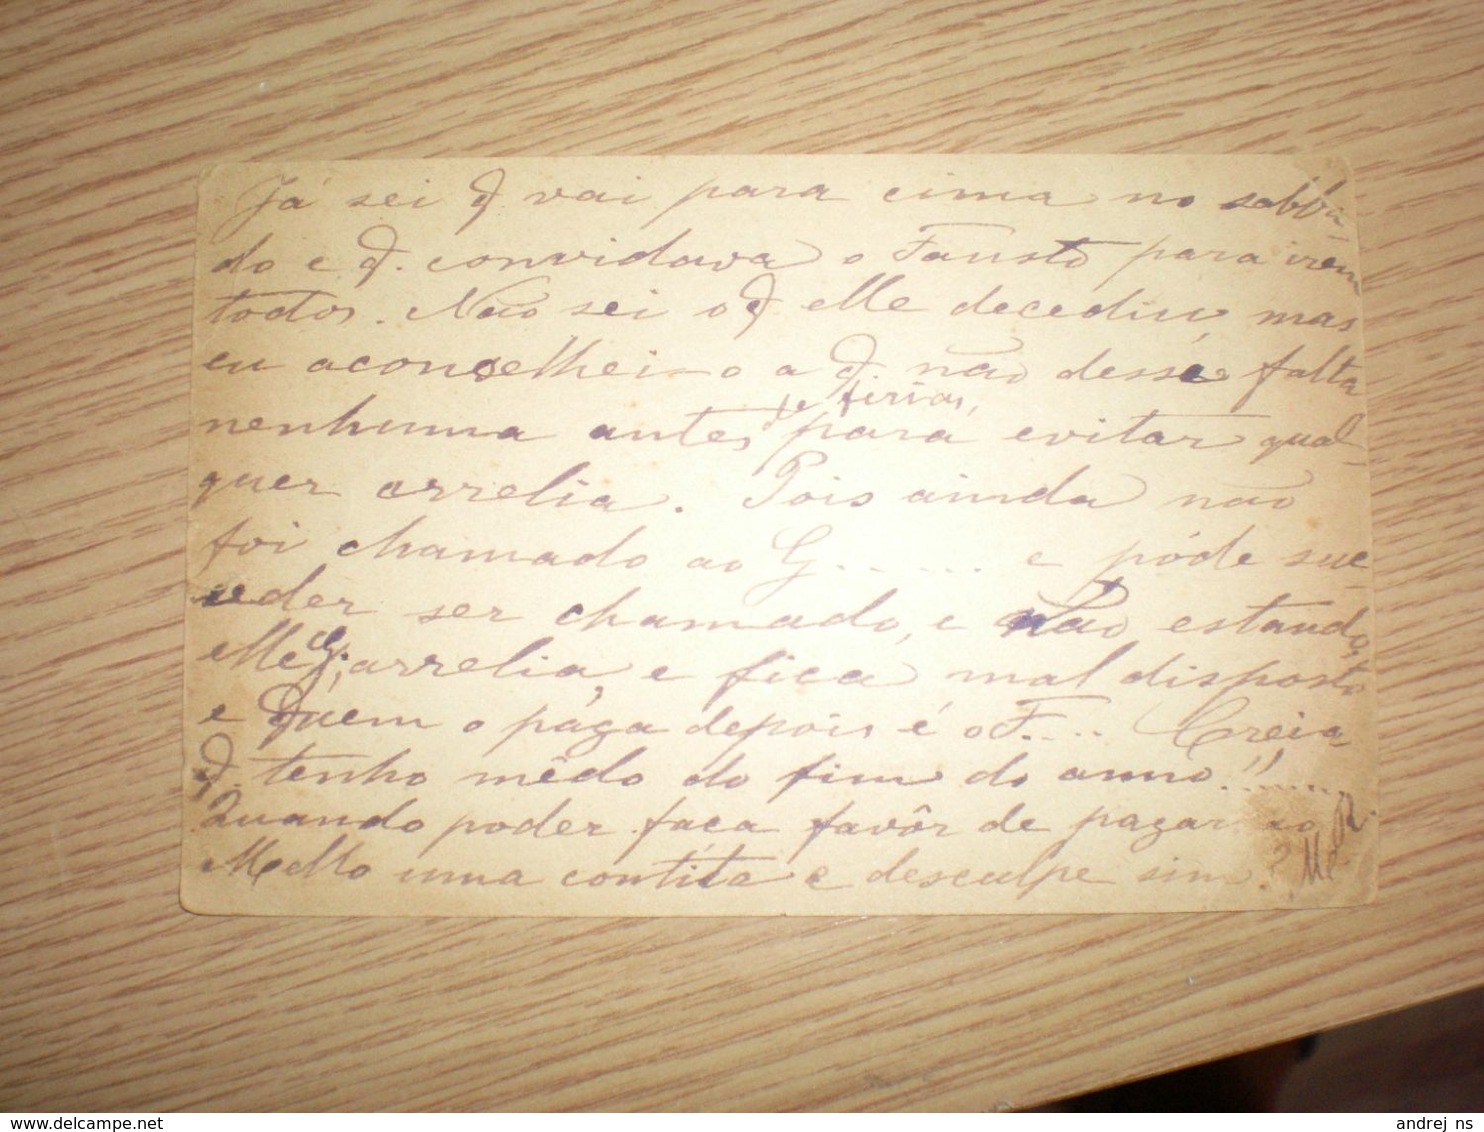 Já sei q̃ vai para cima no sabba-
do e q̃. convidava o Fausto para irem
todos. Não sei o q̃ elle decediu, mas
eu aconselhei-o a q̃ não desse falta
nenhuma antes de firias, para evitar qual-
quer arrelia. Pois ainda não
foi chamado ao G...... e póde suc-
ceder ser chamado, e não estando
elle cá, arrelia, e fica mal disposto
e quem o pága depois é o F.... Creia
q̃. tenho mêdo do fim do anno!!.......
Quando poder faca favôr de pagar ao
Mello uma contita e desculpe sim?
andrej ns